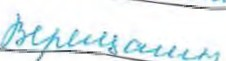 Верещагин